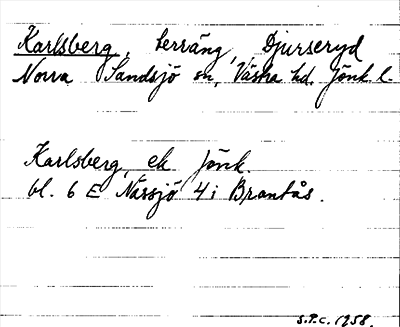 Karlsberg, terräng, Djurseryd
Norra Sandsjö sn, Västra hd. Jönk. l.
Karlsberg, ek Jönk.
bl. 6 E Nässjö 4i Brantås.
S.P.C. 1958.